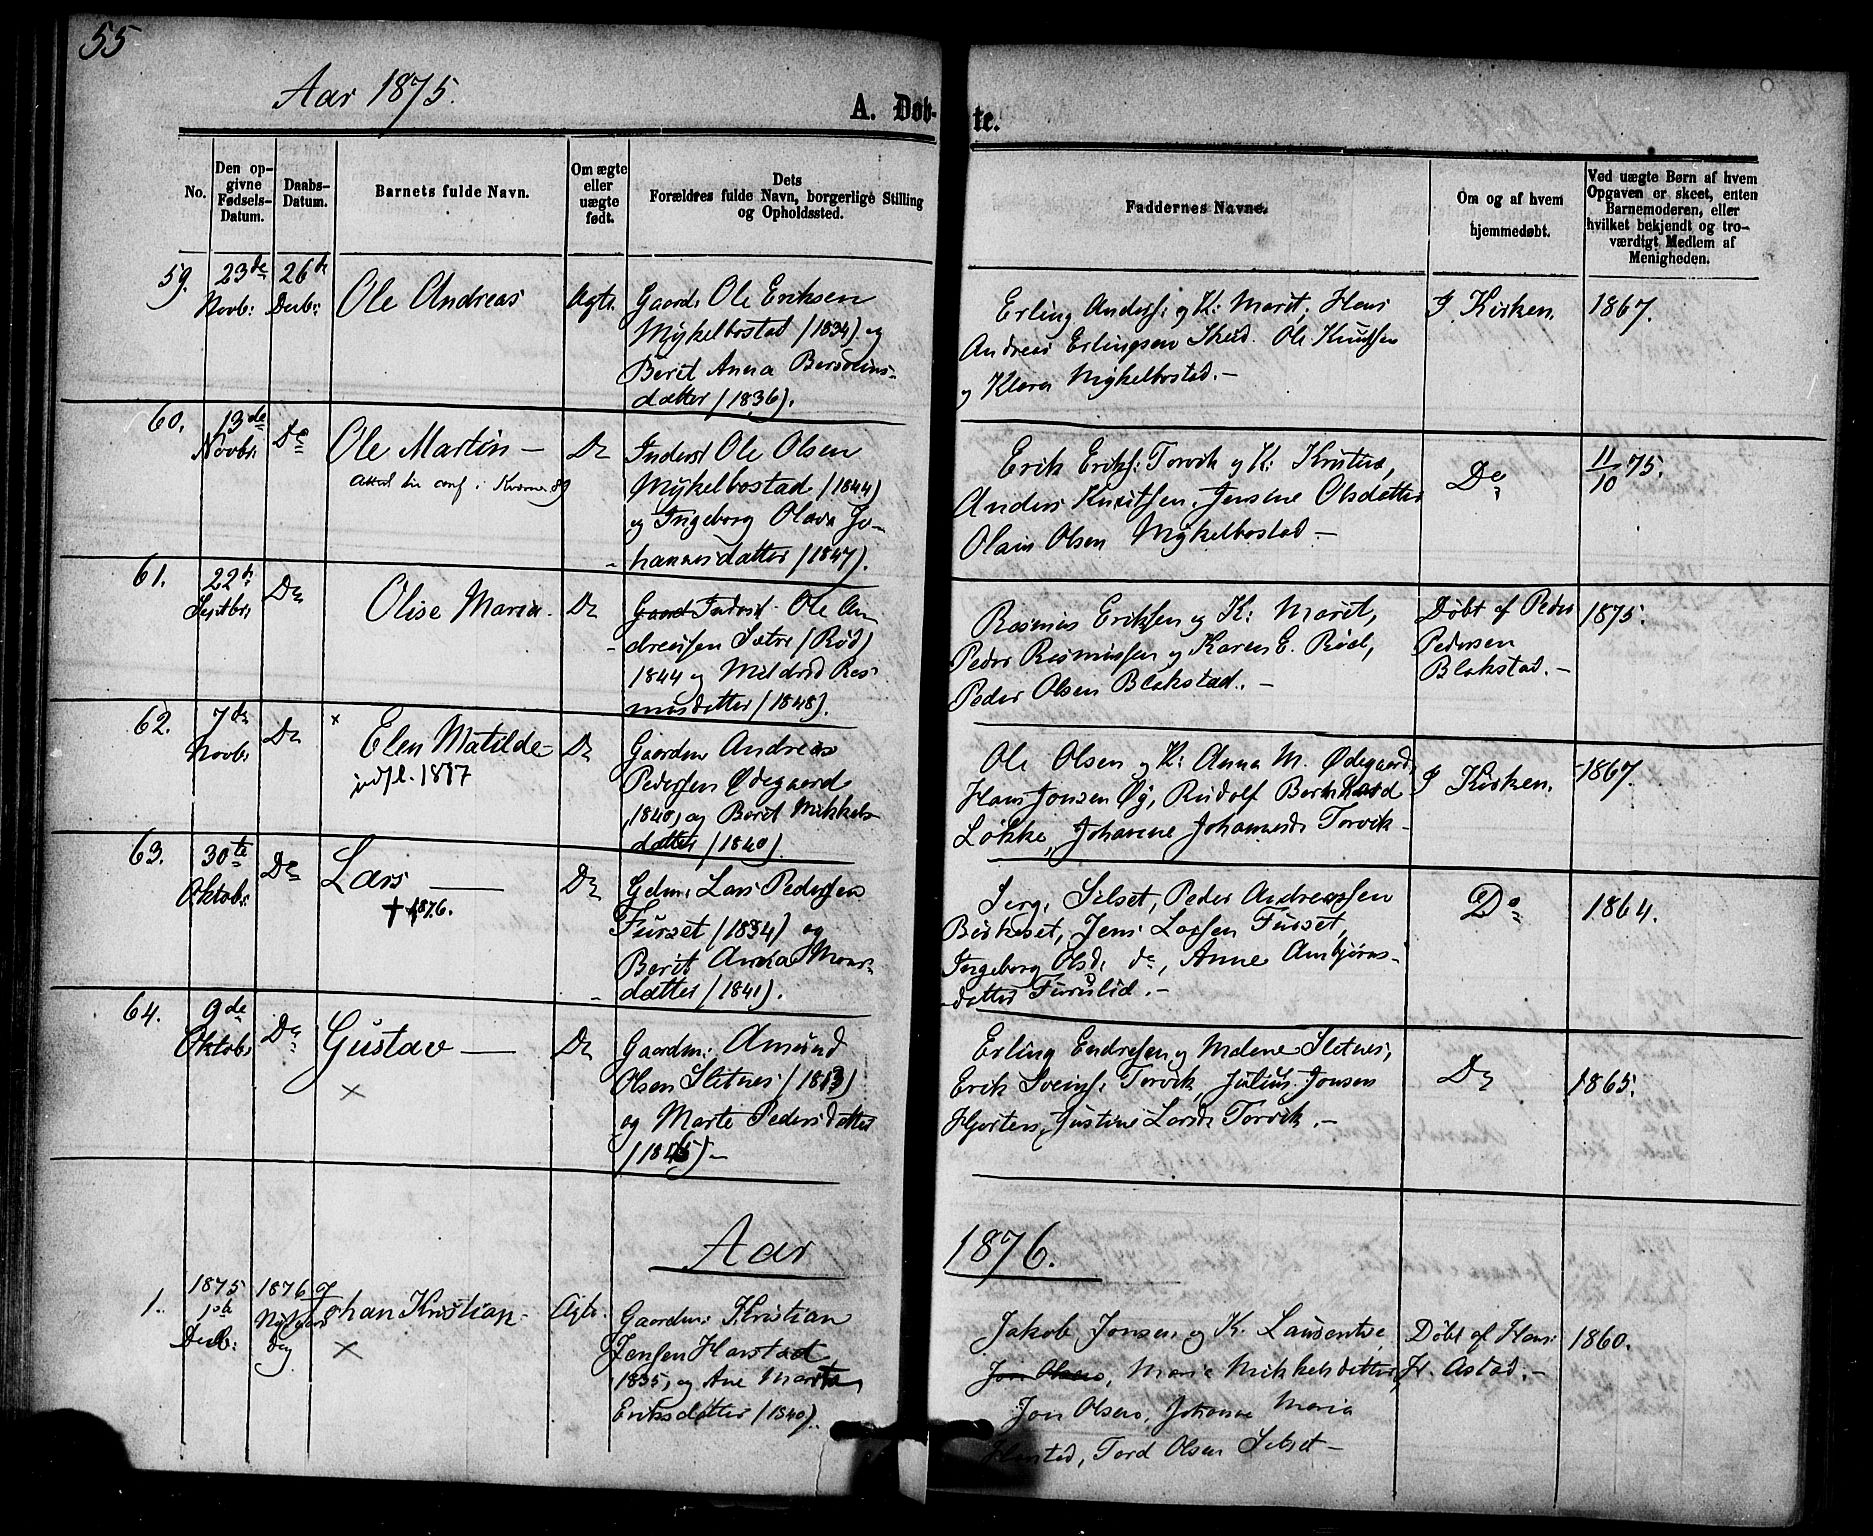 55
Aar 1875.
A. Døb-
te.
No.
Den op-
givne
Fødsels-
Datum.
Daabs-
Datum.
Barnets fulde Navn.
Om ægte
eller
uægte
født.
Dets
Forældres fulde Navn, borgerlige Stilling
og Opholdssted.
Faddernes Navne.
Om og af hvem
hjemmedøbt.
Ved uægte Børn af hvem
Opgaven er skeet, enten
Barnemoderen, eller
hvilket bekjendt og tro-
værdigt Medlem af
Menigheden.
59.
23de
Novbr:
26de
Decbr:
Ole Andreas
Ægte.
Gaard: Ole Eriksen
Mykelbostad (1834) og
Berit Anna
datter (1836).
Erling Anders: og K: Marit, Hans
Andreas Erlingsen Skeid. Ole Knutsen
og Klara Mykelbostad.-
I Kirken.
1867.
60.
13de
Novbr
Do
Ole Martin -
Do
Inderst Ole Olsen
Mykelbostad (1844)
og Ingeborg Olava Jo-
hannesdatter (1847).
Erik Eriks: Torvik og K:
Anders Knutsen, Jensine Olsdatter
Olsen Mykelbostad -
Do
11/10 75.
61.
22de
Septbr
Do
Olise Maria.
Do
Gaard Inderst. Ole An-
dreassen Sætre (Rød)
1844 og Mildrid Ras-
musdatter (1848).
Rasmus Eriksen og K: Marit,
Peder Rasmussen og Karen E. Rød,
Peder Olsen Blakstad. -
Døbt af Peder
Pedersen
Blakstad. -
1875.
62.
7de
Novbr
Do
x
Elen Matilde -
1877
Do
Gaardm Andreas
Pedersen Ødegaard
1840, og Berit Mikkels-
datter (1840).
Ole Olsen og K: Anna M. Ødegaard,
Hans Jonsen Øy, Rudolf Bernhard
Løkke, Johanne Johannesd: Torvik -
I Kirken.
-1867.
63.
30te
Oktobr:
Do
Lars
† 1876.
Do
Gdm: Lars Pedersen
Furset (1834) og
Berit Anna
datter (1841).
Silset, Peder Andreassen
Birkeset, Jens Larsen Furset,
Ingeborg Olsd: do, Anne Ambjørns-
datter Furulid. -
Do
1864.
64.
9de
Oktobr
Do
Gustav
x
Do
Gaardm: Amund
Olsen Sletnes (1813)
og Marte Pedersdatter
Erling Endresen og Malene Sletnes,
Erik Sveins: Torvik, Julius Jonsen
Hjorten, Justine Larsd: Torvik. -
Do
1865.
Aar
1876.
1.
1875
1ste
Decbr:
1876
Nytaars
dag
Johan Kristian -
x
Ægte.
Gaardm: Kristian
Jensen Harstad
1835, og Ane Marta
Eriksdatter (1840).
Jakob Jonsen og K. Laurentse
Jon Olsens, Marie Mikkelsdatter,
Jon Olsens, Johanne Maria
Harstad, Tord Olsen Silset -
Døbt af Hans
H. Astad. -
1860.